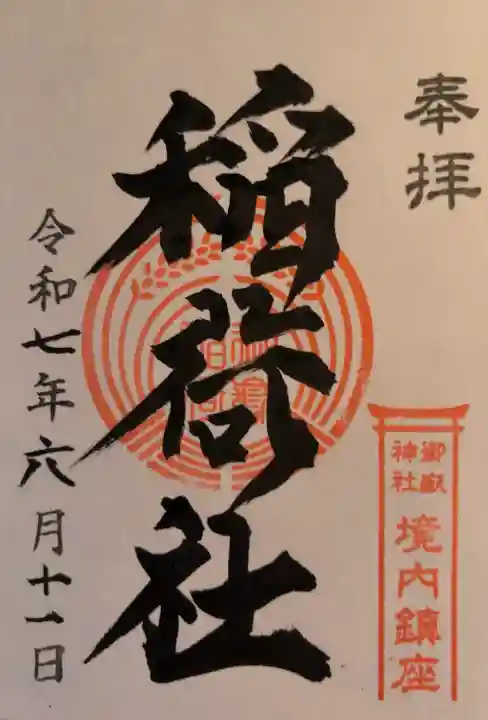 奉拝
稲荷社
令和七年六月十一日
御嶽神社
境内鎮座